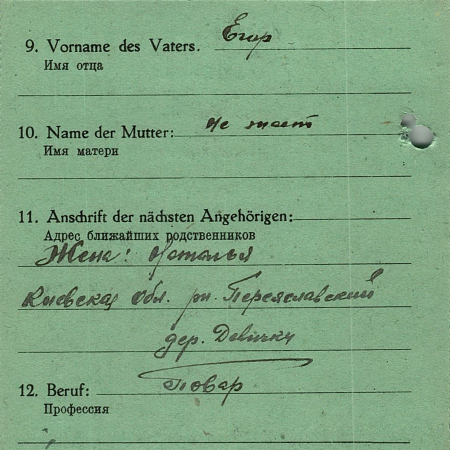 9. Vorname des Vaters. Егор
Имя отца
10. Name der Mutter: не знает
Имя матери
11. Anschrift der nächsten Angehörigen:
Адрес ближайших родственников
Жена: Наталья
Киевская обл. рн. Переяславский
дер. Девички
12. Beruf: Повар
Профессия